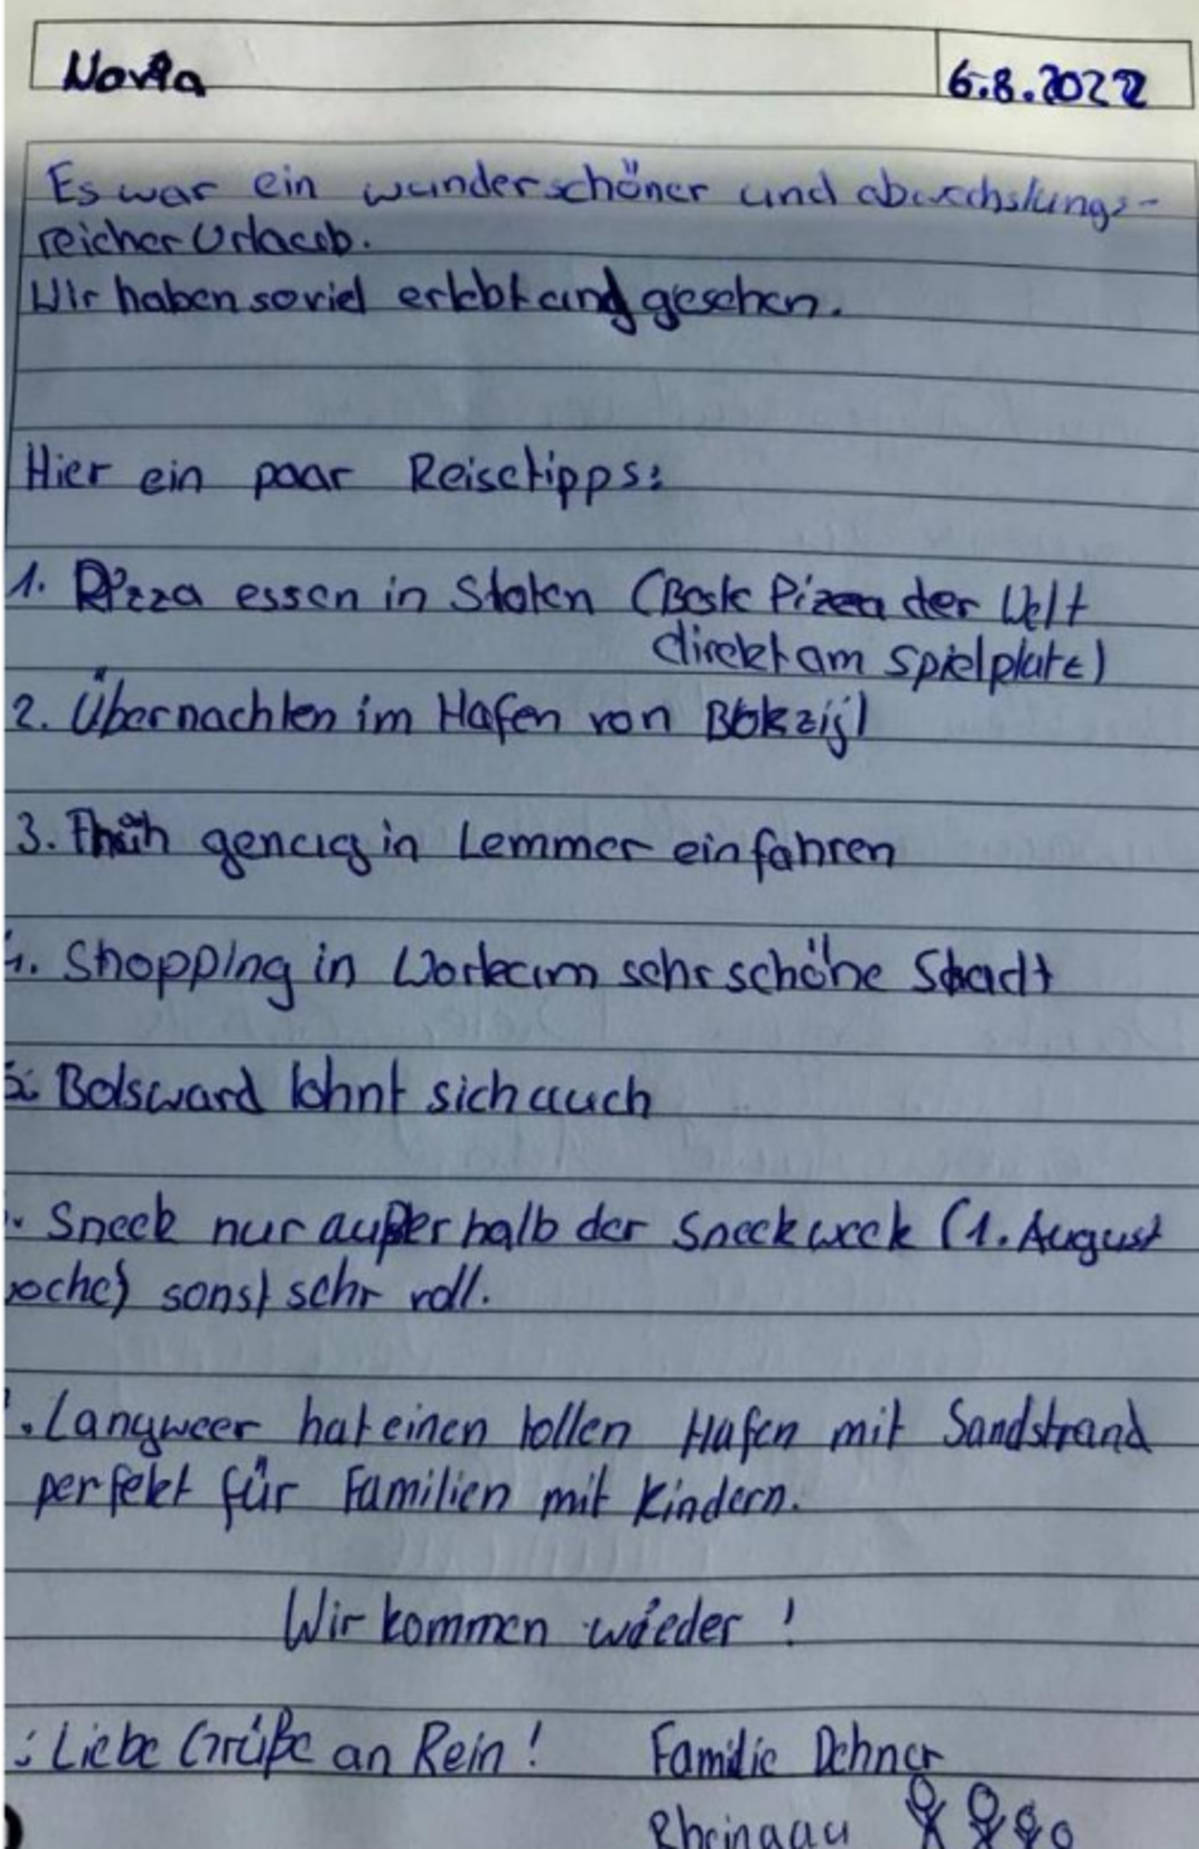 Novia
6.8.2022
Es war ein wunderschöner und abwechslungs-
reicher Urlaub.
Wir haben soviel erlebt und gesehen.
Hier ein paar Reisetipps:
1. Pizza essen in Sloten (Beste Pizza der Welt
direkt am Spielplatz)
2. Übernachten im Hafen von Blokzijl
3. Früh genug in Lemmer einfahren
4. Shopping in Workum sehr schöne Stadt
5. Bolsward lohnt sich auch
. Sneek nur außerhalb der Sneekweek (1. August
oche) sonst sehr voll.
. Langweer hat einen tollen Hafen mit Sandstrand
perfekt für Familien mit Kindern.
Wir kommen wieder!
: Liebe Grüße an Rein! Familie Dehner
Rheingau